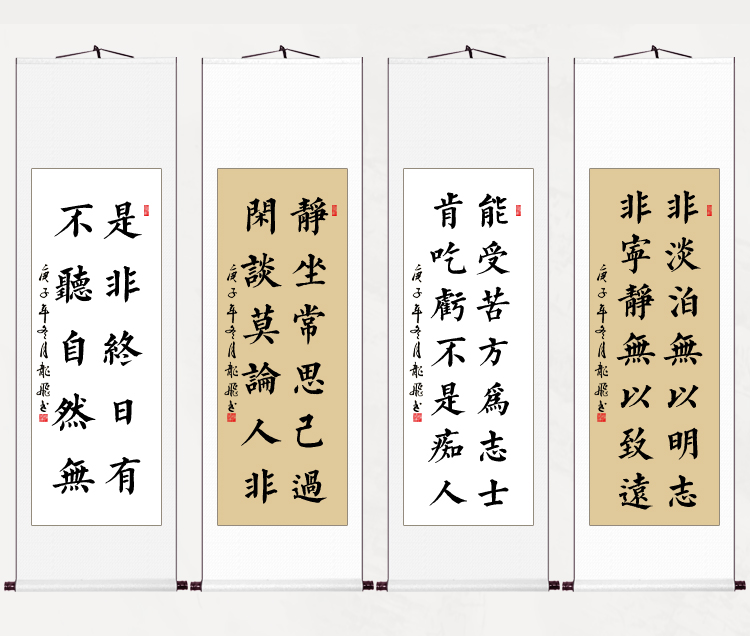 非淡泊無以明志
非寧靜無以致遠
庚子年冬月龍飛书
能受苦方為志士
肯吃虧不是痴人
庚子年冬月龍飛书
靜坐常思己過
閑談莫論人非
庚子年冬月龍飛书
是非終日有
不聽自然無
庚子年冬月龍飛书